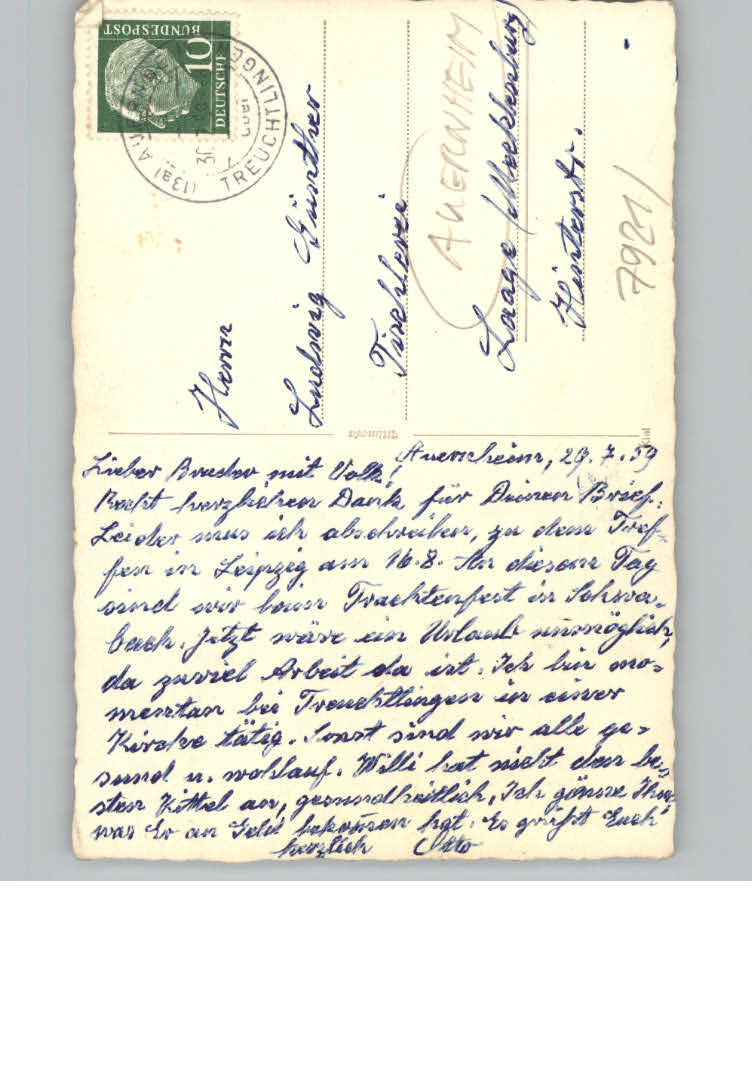 DEUTSCHE
BUNDESPOST
10
(13a) AUERNHEIM
TREUCHTLINGEN
Herrn
Ludwig Günther
Tischlerei
Laage /Mecklenburg/
Hinterstr.
AUERNHEIM
7921/
Auernheim, 29.7.59
Lieber Bruder mit Volk!
Recht herzlichen Dank für Deinen Brief.
Leider mus ich abschreiben, zu dem Tref-
fen in Leipzig am 16.8. An diesem Tag
sind wir beim Trachtenfest in Schwa-
bach. Jetzt wäre ein Urlaub unmöglich,
da zuviel Arbeit da ist. Ich bin mo-
mentan bei Treuchtlingen in einer
Kirche tätig. Sonst sind wir alle ge-
sund u. wohlauf. Willi hat nicht den be-
sten Kittel an, gesundheitlich. Ich gönne Ihm
was Er an Geld bekommen hat. Es grüßt Euch
herzlich Otto